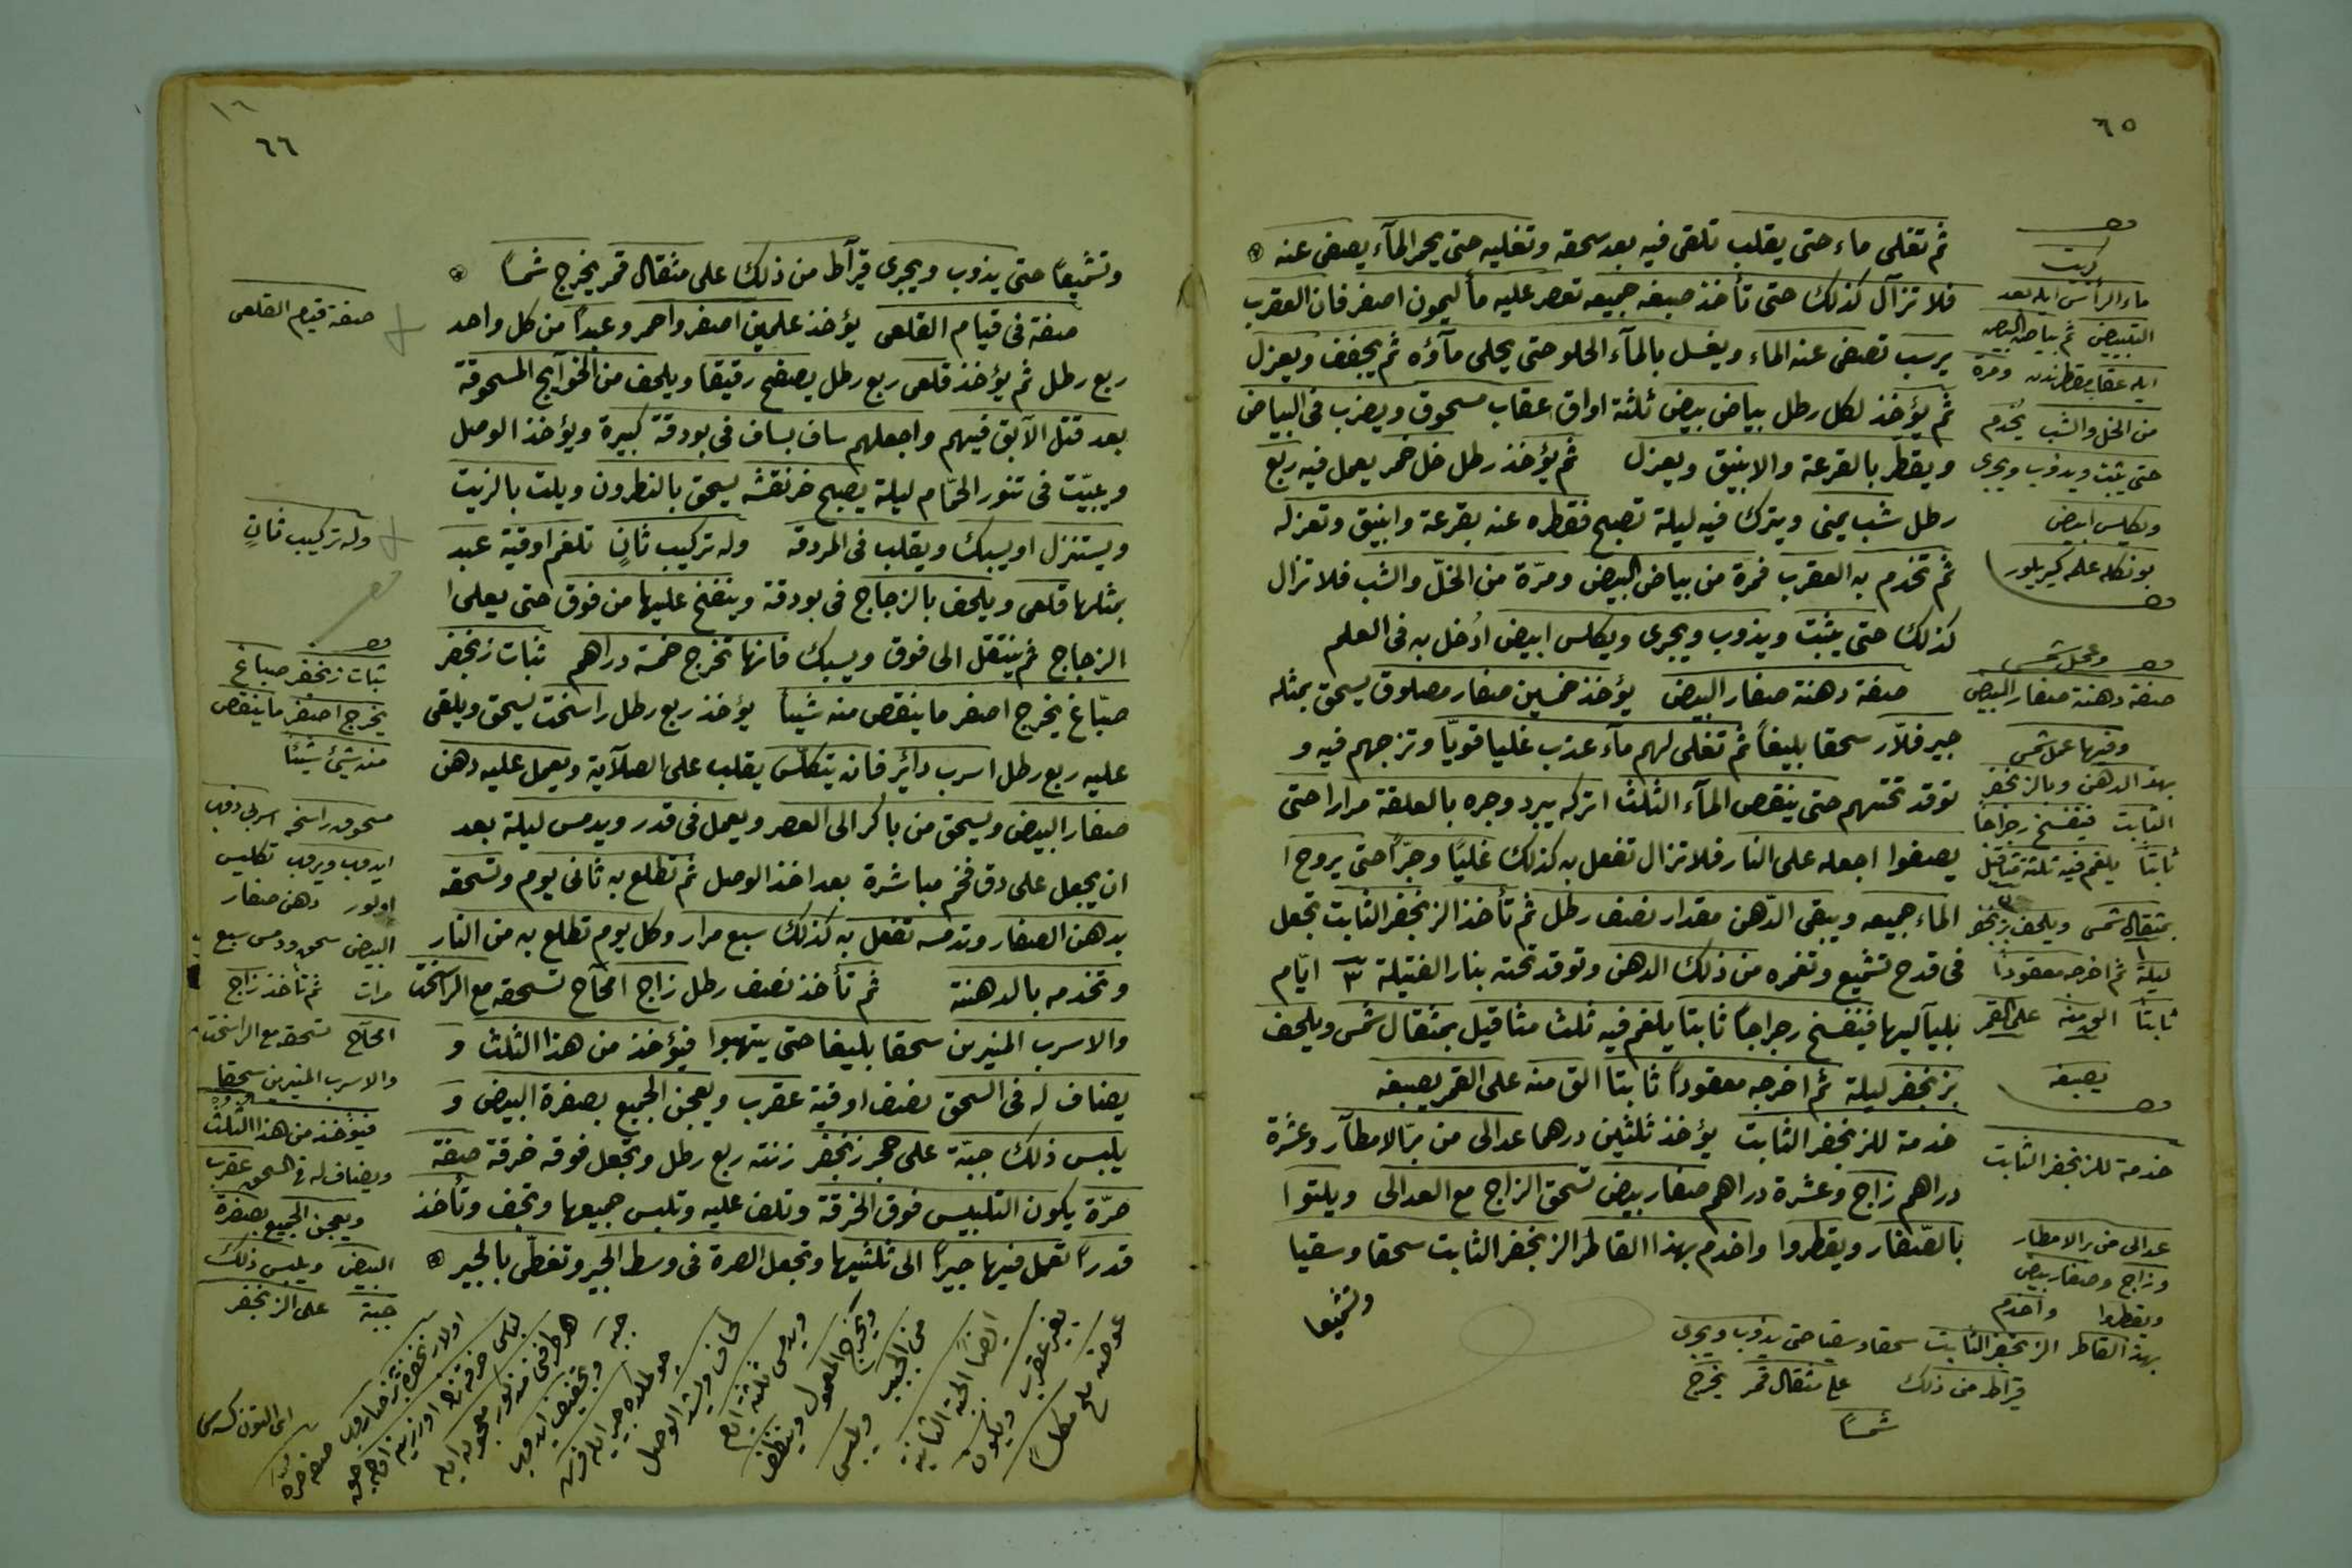 ٦٥
ثم تغلى ماء حتى يقلب تلقى فيه بعد سحقه وتغليه حتى يحمر المآء يصفى عنه
فلا تزآل كذلك حتى تأخذ صبغه جميعه تعصر عليه مأ ليمون اصفر فان العقرب
يرسب تصفى عنه الماء ويغسل بالمآء الحلو حتى يحلى مآؤه ثم يجفف ويعزل
ثم يؤخذ لكل رطل بياض بيض ثلثة اواق عقاب مسحوق ويضرب فى البياض
ويقطر بالقرعة والانبيق ويعزل ثم يؤخذ رطل خل خمر يعمل فيه ربع
رطل شب يمنى ويترك فيه ليلة تصبح فقطره عنه بقرعة وانبيق وتعزله
ثم تخدم به العقرب فمرة من بياض البيض ومرّة من الخلّ والشب فلا تزال
كذلك حتى يثبت ويذوب ويجرى ويكلس ابيض أدخل به فى العلم
صفة دهنة صفار البيض يؤخذ خمسين صفار مصلوق يسحق بمثله
جير فلاّر سحقا بليغاً ثم تغلى لهم مآء عذب غليا قويّا وتزجهم فيه و
توقد تحتهم حتى ينقص المآء الثلث اتركه يبرد وجره بالعلقة مرارا حتى
يصفوا اجعله على النار فلا تزال تفعل به كذلك غليًا وجرًّا حتى يروح ا
الماء جميعه ويبقى الدّهن مقدار نصف رطل ثم تأخذ الزنجفر الثابت تجعل
فى قدح تشميع وتغمره من ذلك الدهن وتوقد تحته بنار الفتيلة ٣ ايّام
بلياليها فينفسخ رجراجاً ثابتا يلغم فيه ثلث مثاقيل بمثقال شمس ويلحف
بزنجفر ليلة ثم اخرجه معقوداً ثابتا الق منه على القمر يصبغه
خدمة للزنجفر الثابت يؤخذ ثلثين درهما عدالى من برّ الامطآر وعشرة
دراهم زاج وعشرة دراهم صفار بيض تسحق الزاج مع العدالى ويلتوا
بالصّفار ويقطروا واخدم بهذا القاطر الزنجفر الثابت سحقا وسقيا
وتشميعا
ماء الرأس ايله بعد
التبييض ثم بياض البيض
ايله عقاب مقطرندن ومرة
من الخل والشب يخدم
حتى يثبت ويذوب ويجرى
وتكلس ابيض
بونكله علمه كيريلور
وعمل شمس
صفة دهنة صفار البيض
وفيها عمل شمس
بهذا الدهن وبالزنجفر
الثابت فينفسخ رجراجا
ثابتاً يلغم فيه ثلثة مثاقيل
بمثقال شمس ويلحف بزنجفر
ليلة ثم اخرجه معقوداً
ثابتاً الق منه على القمر
يصبغه
خدمة للزنجفر الثابت
عدالى من بر الامطار
وزاج وصفار بيض
ويقطروا واخدم
بهذا القاطر الزنجفر الثابت سحقا وسقيا حتى يذوب ويجرى
قيراط من ذلك على مثقال قمر يخرج
شمسًا
١٦
٦٦
وتشميعاً حتى يذوب ويجرى قيرآط من ذلك على مثقال قمر يخرج شمساً
صفة فى قيام القلعى يؤخذ علمين اصفر واحمر وعبداً من كل واحد
ربع رطل ثم يؤخذ قلعى ربع رطل يصفح رقيقا ويلحف من الحوآيج المسحوقة
بعد قتل الآبق فيهم واجعلهم ساف بساف فى بودقة كبيرة ويؤخذ الوصل
ويبيّت فى تنور الحمّام ليلة يصبح خرنقشه يسحق بالنطرون ويلت بالزيت
ويستنزل او يسبك ويقلب فى المردقه وله تركيب ثانٍ تلغم اوقية عبد
بمثلها قلعى ويلحف بالزجاج فى بودقة وينفخ عليها من فوق حتى يعلى ا
الزجاج ثم ينتقل الى فوق ويسبك فانها تخرج خمسة دراهم ثبات زنجفر
صبّاغ يخرج اصفر ما ينقص منه شيأ يؤخذ ربع رطل راسخت يسحق ويلقى
عليه ربع رطل اسرب دائر فانه يتكلّس يقلب على الصلآية ويعمل عليه دهن
صفار البيض ويسحق من باكر الى العصر ويعمل فى قدر ويدمس ليلة بعد
ان يجعل على دق فحم مباشرة بعد اخذ الوصل ثم تطلع به ثانى يوم وتسحقه
بدهن الصفار وتدمسه تفعل به كذلك سبع مرار وكل يوم تطلع به من النار
وتخدمه بالدهنة ثم تأخذ نصف رطل زاج امحآح تسحقه مع الراسخت
والاسرب المنيرين سحقا بليغا حتى يتهبوا فيؤخذ من هذا الثلث و
يضاف له فى السحق نصف اوقية عقرب ويعجن الجميع بصفرة البيض و
يلبس ذلك جبّة على حجر زنجفر زنته ربع رطل وتجعل فوقه خرقة صفة
صرّة يكون التلبيس فوق الخرقة وتلف عليه وتلبس جميعها وتجف وتأخذ
قدراً تعمل فيها جيراً الى ثلثيها وتجعل الصرة فى وسط الجير وتغطّى بالجير
صفة قيام القلعى
وله تركيب ثانٍ
ثبات زنجفر صباغ
يخرج اصفر ما ينقص
منه شيئًا
مسحوق راسخت
تكليس
اولور دهن صفار
البيض سحق ودمس سبع
مرات ثم تأخذ زاج
امحآح تسحقه مع الراسخت
والاسرب المنيرين سحقا
فيؤخذ من هذا الثلث
ويضاف له فى السحق عقرب
ويعجن الجميع بصفرة
البيض ويلبس ذلك
جبة على الزنجفر
ويدمس ثلثة ايام
ويخرج المعمول وينظف
من الجبس ويلبس
ايضًا الجبة الثانية
بغير عقرب ويكون
عوضه ملح مكلسًا